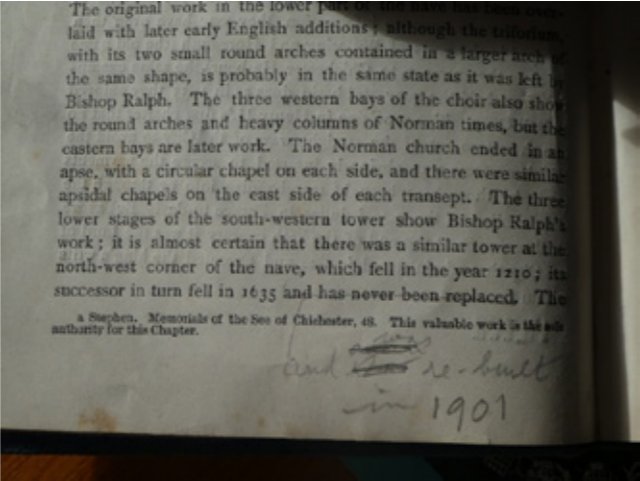 The original work in the lower part of the nave has been over-
laid with later early English additions; although the triforium,
with its two small round arches contained in a larger arch of
the same shape, is probably in the same state as it was left by
Bishop Ralph. The three western bays of the choir also show
the round arches and heavy columns of Norman times, but the
eastern bays are later work. The Norman church ended in an
apse, with a circular chapel on each side, and there were similar
apsidal chapels on the east side of each transept. The three
lower stages of the south-western tower show Bishop Ralph's
work; it is almost certain that there was a similar tower at the
north-west corner of the nave, which fell in the year 1210; its
successor in turn fell in 1635 and has never been replaced. The
a Stephen. Memorials of the See of Chichester, 48. This valuable work is the sole
authority for this Chapter.
and re-built
in 1901